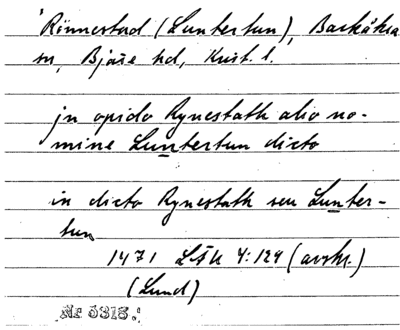 'Rönnestad (Luntertun), Barkåkra
sn, Bjäre hd, Krist. l.
jn opido Rynestath alio no-
mine Luntertun dicto
in dicto Rynestath seu Lunter-
tun
1471 LÄU 4:129 (avskr.)
(Lund)
Nr 5318.